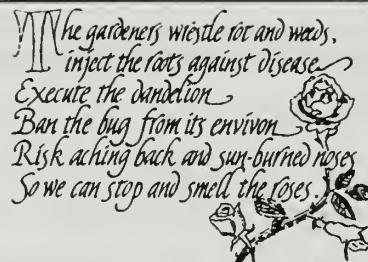 The gardeners wrestle rot and weeds,
inject the roots against disease
Execute the dandelion
Ban the bug from its environ
Risk aching back and sun-burned noses
So we can stop and smell the roses.